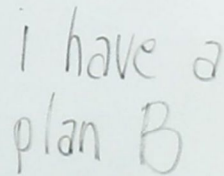 i have a
plan B